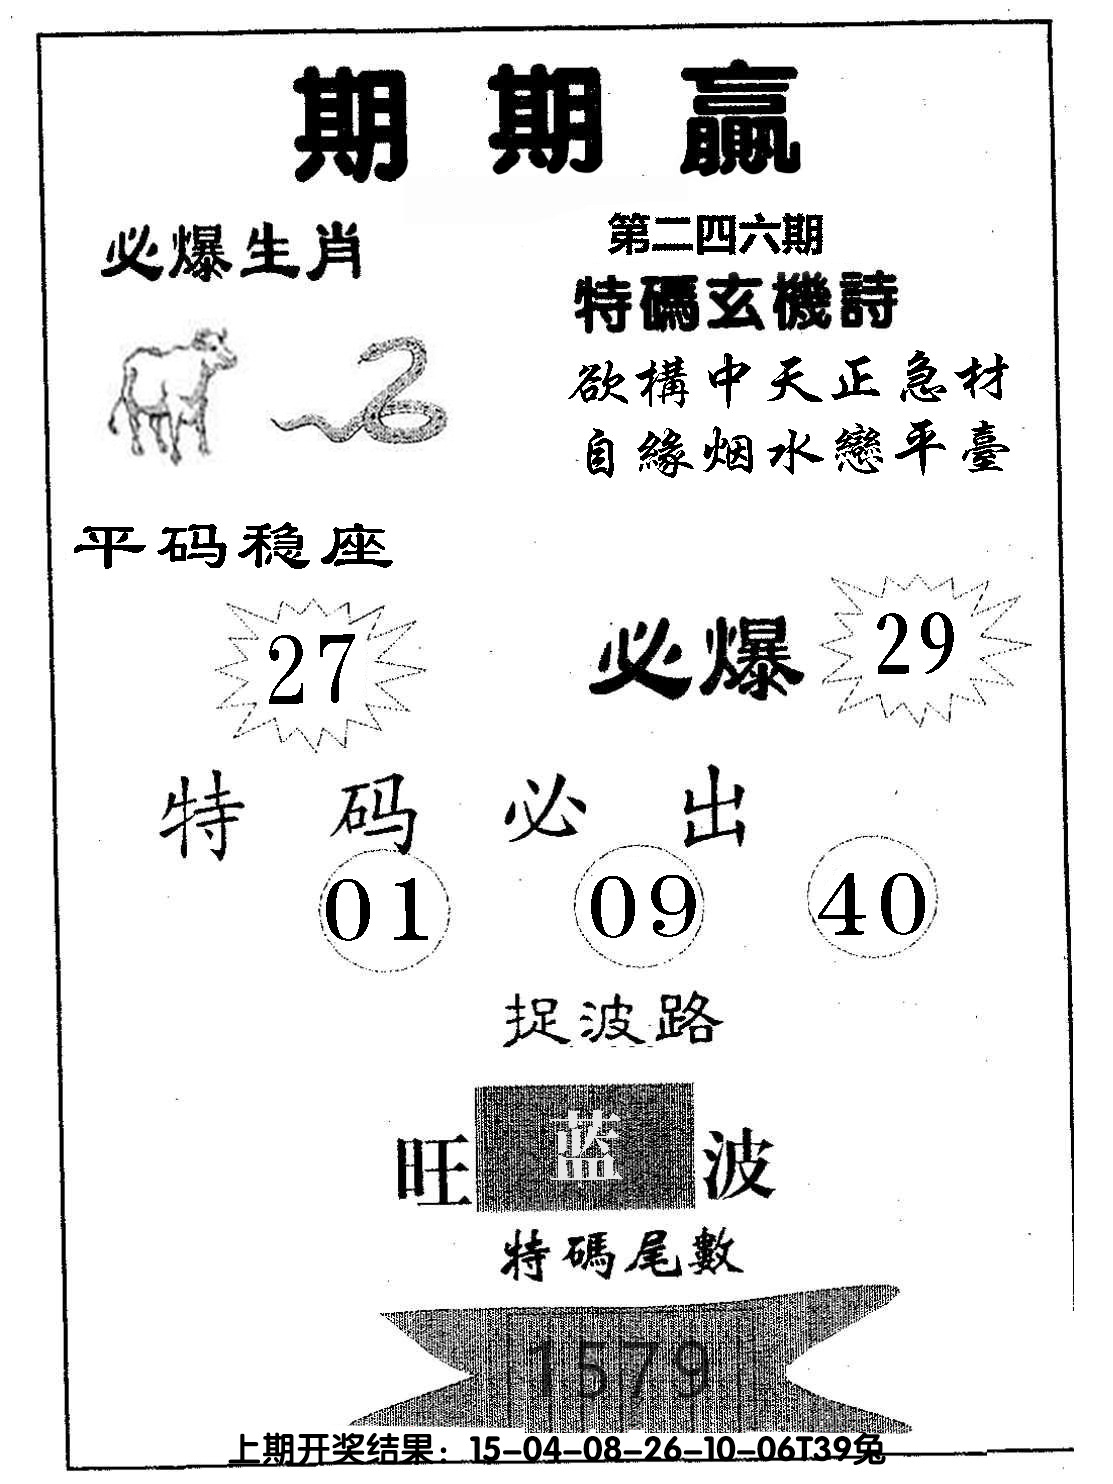 期期贏
必爆生肖
第二四六期
特碼玄機詩
欲構中天正急材
自緣烟水戀平臺
平码稳座
27
必爆 29
特码必出
01 09 40
捉波路
旺蓝波
特碼尾數
1579
上期开奖结果：15-04-08-26-10-06T39兔